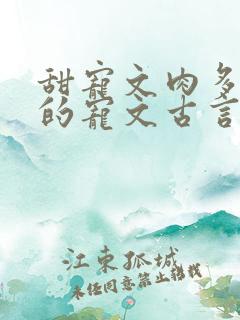 甜寵文肉多
的寵文古言
江東孤城
未经同意禁止转载